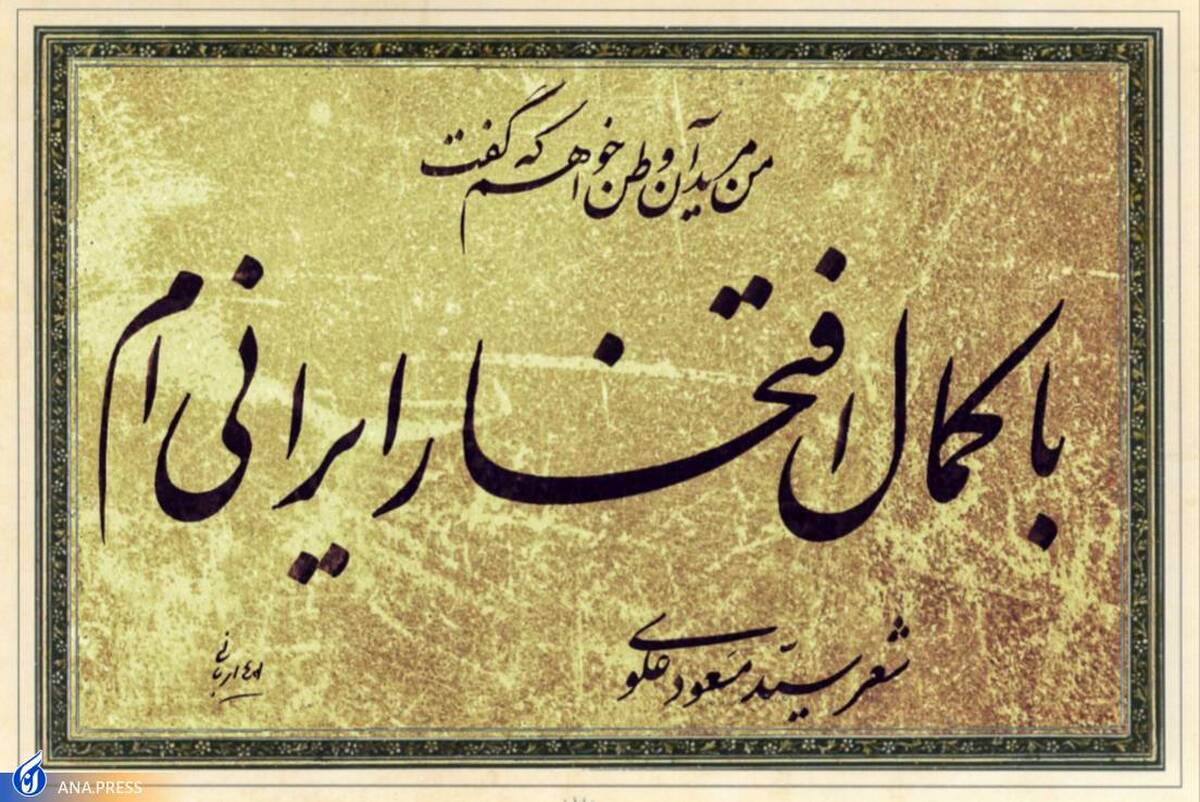 من مرید آن وطن خواهم که گفت
با کمال افتخار ایرانی ام
شعر سیّد مسعود علوی
ANA.PRESS